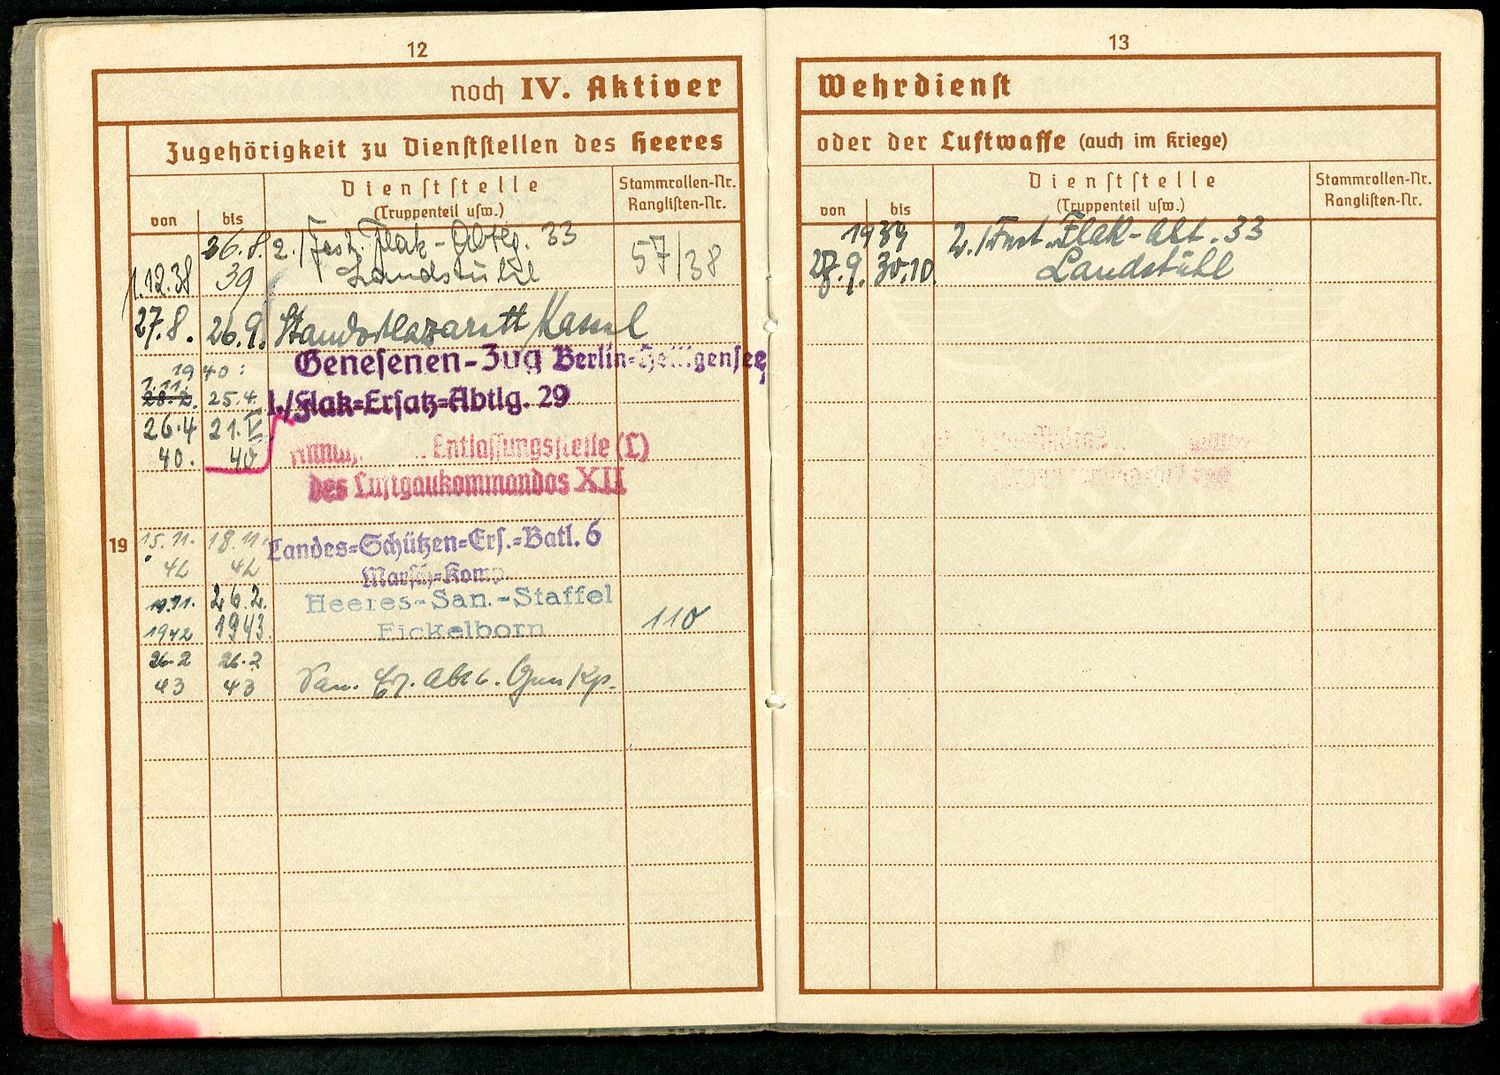 12
noch IV. Aktiver
Zugehörigkeit zu Dienststellen des Heeres
von
bis
Dienststelle
(Truppenteil usw.)
Stammrollen-Nr.
Ranglisten-Nr.
1.12.38
26.8.
39
2./Fest. Flak-Abtlg. 33
Landstuhl
57/38
27.8.
26.9.
Standortlazarett Kassel
1940:
Genesenen-Zug Berlin-Heiligensee
1.11.
28.2.
25.4.
1./Flak-Ersatz-Abtlg. 29
26.4
40.
21.V
40
Entlassungsstelle (L)
des Luftgaukommandos XII
19
15.11.
42
18.11.
42
Landes-Schützen-Ers.-Batl. 6
Marsch-Komp.
19.11.
1942
26.2.
1943.
Heeres-San.-Staffel
Eickelborn
110
26.2
43
26.2
43
San. Ers. Abt. 6. Gen Kp.
13
Wehrdienst
oder der Luftwaffe (auch im Kriege)
von
bis
Dienststelle
(Truppenteil usw.)
Stammrollen-Nr.
Ranglisten-Nr.
1939
27.9.
30.10.
2./Fest. Flak-Abt. 33
Landstuhl